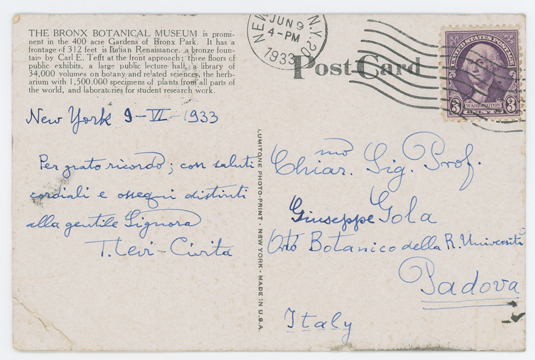 THE BRONX BOTANICAL MUSEUM is promi-
nent in the 400 acre Gardens of Bronx Park. It has a
frontage of 312 feet is Italian Renaissance, a bronze foun-
tain by Carl E. Tefft at the front approach; three floors of
public exhibits, a large public lecture hall, a library of
34,000 volumes on botany and related sciences, the herb-
arium with 1,500,000 specimens of plants from all parts of
the world, and laboratories for student research work.
NEW N.Y. 20
JUN 9
4-PM
1933
Post Card
UNITED STATES POSTAGE
3 WASHINGTON 3
CENTS
New York 9-VI-1933
Per grato ricordo; con saluti
cordiali e ossequi distinti
alla gentile Signora
T. Levi-Civita
LUMITONE PHOTOPRINT - NEW YORK - MADE IN U.S.A.
Chiar.mo Sig. Prof.
Giuseppe Gola
Orto Botanico della R. Università
Padova
Italy